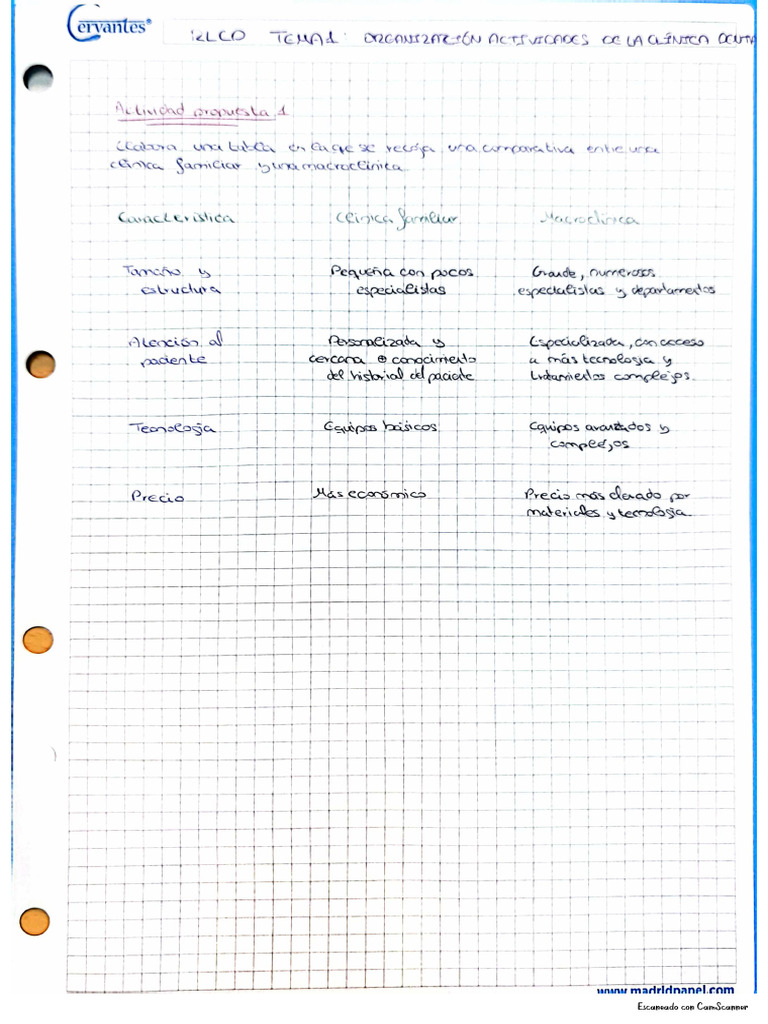 Cervantes®
RLCD TEMA 1: ORGANIZACIÓN ACTIVIDADES DE LA CLÍNICA DENTA
Actividad propuesta 1
Elabora una tabla en la que se recoja una comparativa entre una
clínica familiar y una macroclínica.
Característica Clínica familiar Macroclínica
Tamaño y Pequeña con pocos Grande, numerosos
estructura especialistas especialistas y departamentos
Atención al Personalizada y Especializada, con acceso
paciente cercana ⊕ conocimiento a más tecnología y
del historial del paciente tratamientos complejos.
Tecnología Equipos básicos Equipos avanzados y
complejos
Precio Más económico Precio más elevado por
materiales y tecnología.
www.madridpapel.com
Escaneado con CamScanner